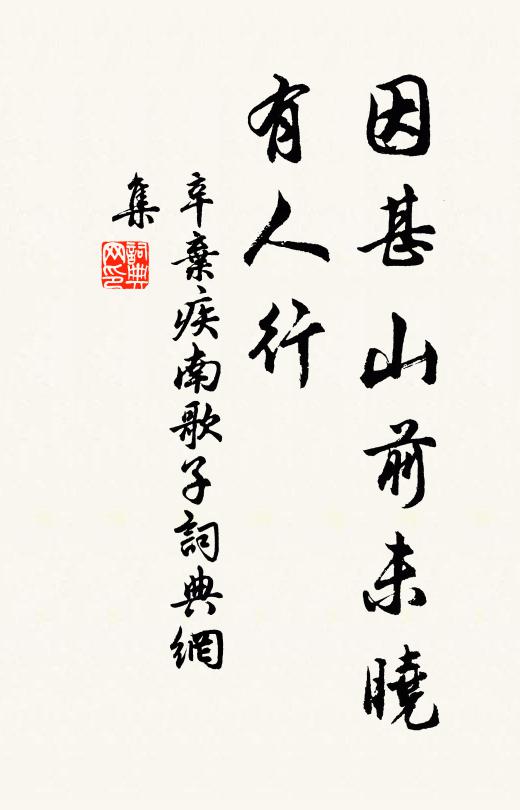 因甚山前未曉
有人行
辛棄疾南歌子詞典網
集
詞典
网印